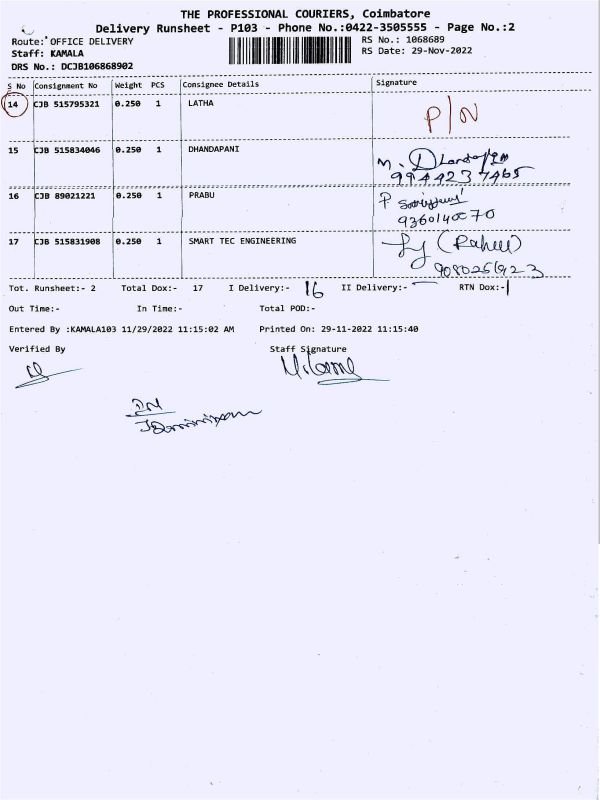 THE PROFESSIONAL COURIERS, Coimbatore
Delivery Runsheet - P103 - Phone No.:0422-3505555 - Page No.:2
Route: OFFICE DELIVERY
RS No.: 1068689
Staff: KAMALA
RS Date: 29-Nov-2022
DRS No.: DCJB106868902
S No Consignment No Weight PCS Consignee Details Signature
14 CJB 515795321 0.250 1 LATHA P/N
15 CJB 515834046 0.250 1 DHANDAPANI M.
9944237465
16 CJB 89021221 0.250 1 PRABU P
9360140070
17 CJB 515831908 0.250 1 SMART TEC ENGINEERING
9080256923
Tot. Runsheet:- 2 Total Dox:- 17 I Delivery:- 16 II Delivery:- — RTN Dox:- 1
Out Time:- In Time:- Total POD:-
Entered By :KAMALA103 11/29/2022 11:15:02 AM Printed On: 29-11-2022 11:15:40
Verified By Staff Signature